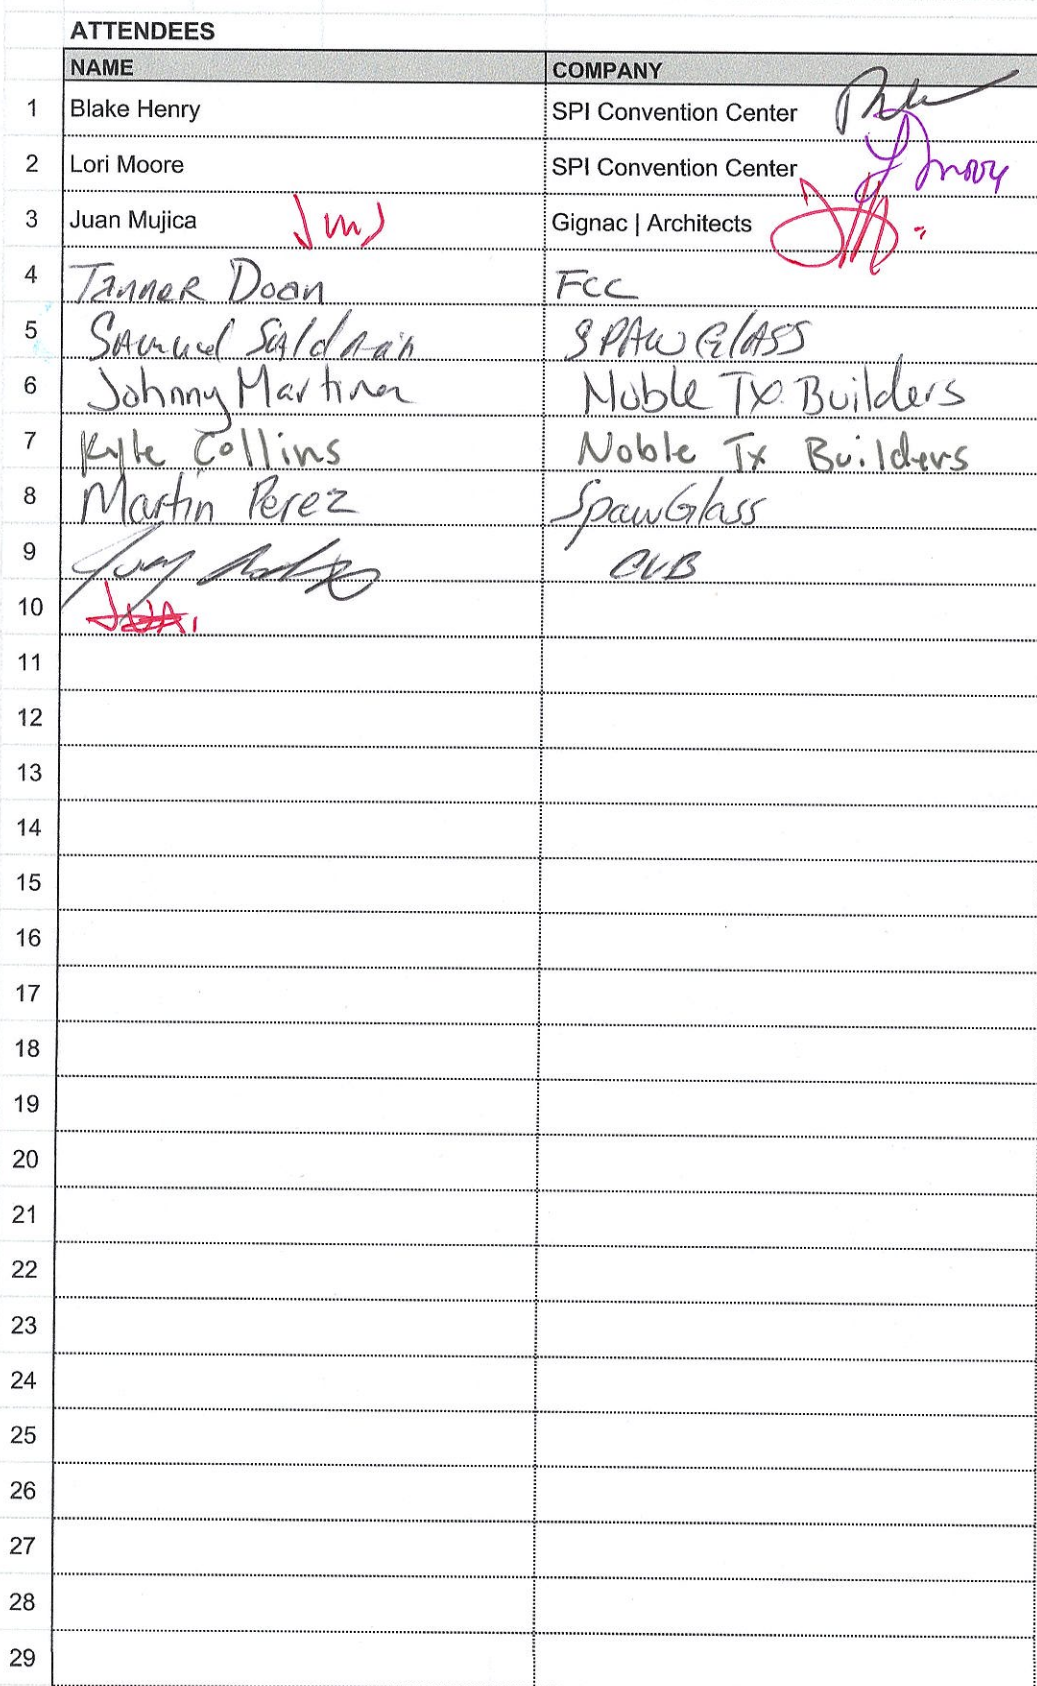 ATTENDEES
NAME COMPANY
1 Blake Henry SPI Convention Center
2 Lori Moore SPI Convention Center L Moore
3 Juan Mujica JMJ Gignac | Architects
4 Tanner Doan FCC
5 Samuel Saldain SPAWGlASS
6 Johnny Martinez Noble TX Builders
7 Kyle Collins Noble Tx Builders
8 Martin Perez SpawGlass
9 CVB
10
11
12
13
14
15
16
17
18
19
20
21
22
23
24
25
26
27
28
29